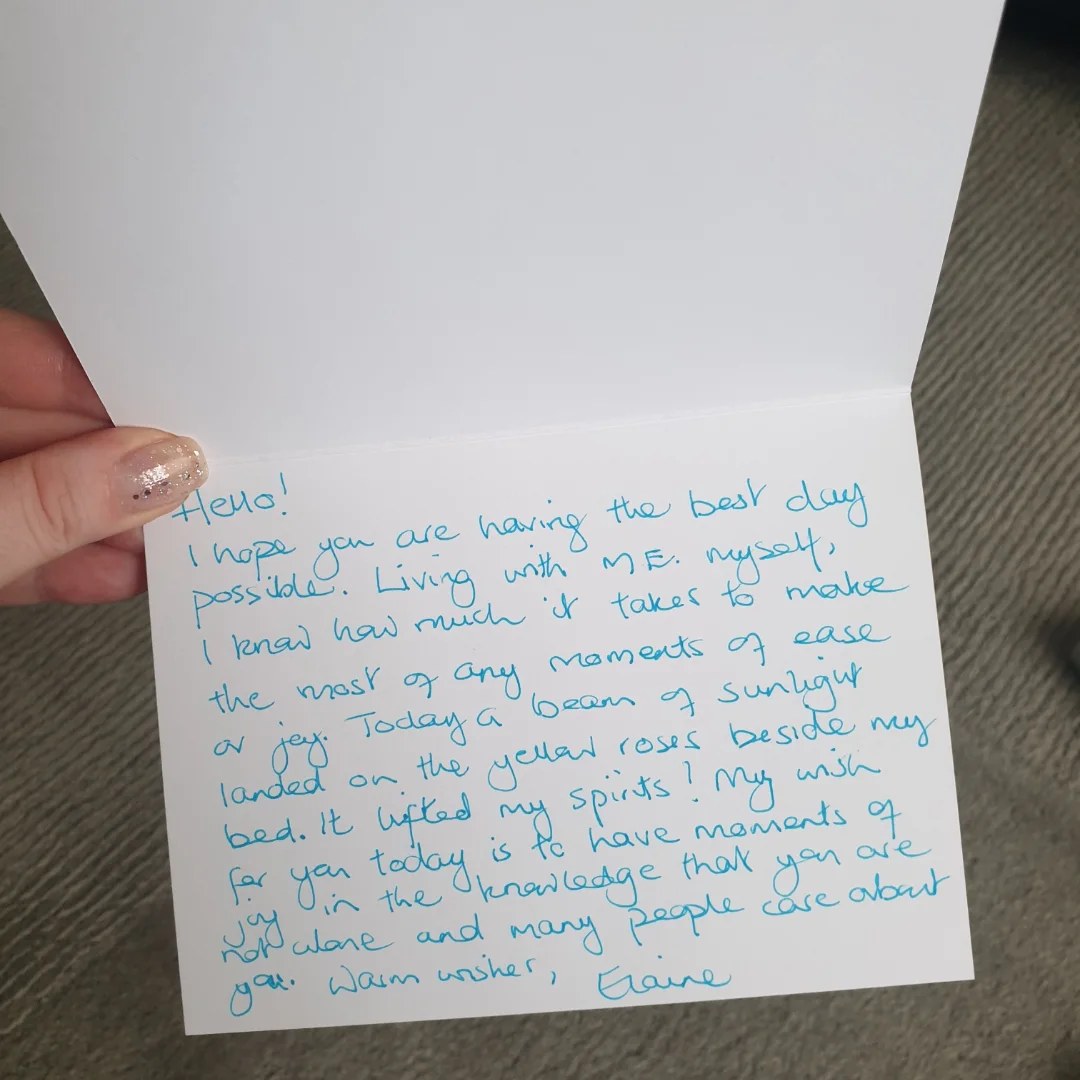 Hello!
I hope you are having the best day
possible. Living with M.E. myself,
I know how much it takes to make
the most of any moments of ease
or joy. Today a beam of sunlight
landed on the yellow roses beside my
bed. It lifted my spirits! My wish
for you today is to have moments of
joy in the knowledge that you are
not alone and many people care about
you. Warm wishes, Elaine